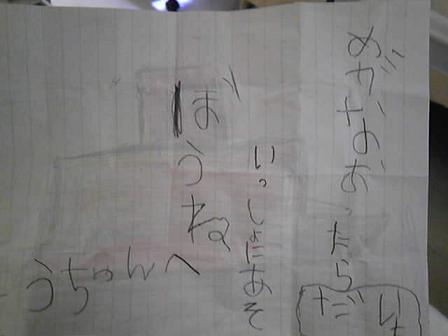 めがなおったら
いっしょにあそ
ぼうね
うちゃんへ